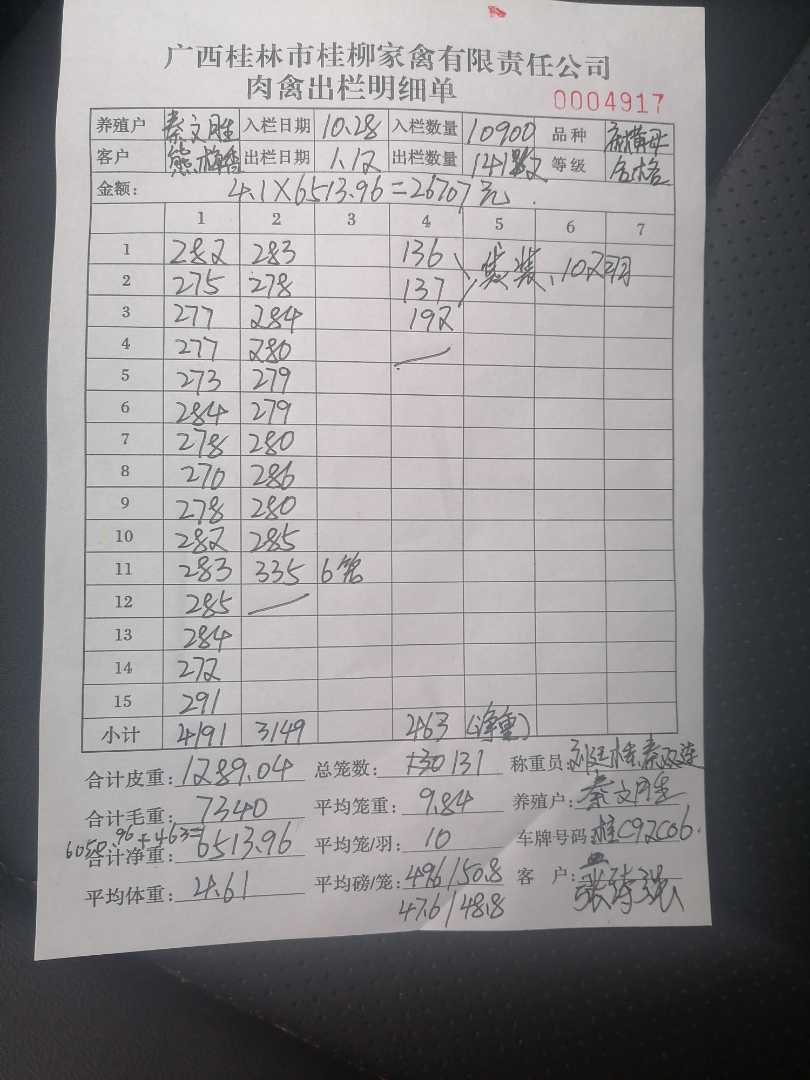 广西桂林市桂柳家禽有限责任公司
肉禽出栏明细单
0004917
养殖户 秦文胜 入栏日期 10.28 入栏数量 10900 品种
客户 熊梅香 出栏日期 1.12 出栏数量 等级 合格
金额: 4.1×6513.96=26707元.
1 2 3 4 5 6 7
1 282 283 136 袋装、10只羽
2 275 278 137
3 277 284 192
4 277 280
5 273 279
6 284 279
7 278 280
8 270 286
9 278 280
10 282 285
11 283 335 6笼
12 285
13 284
14 272
15 291
小计 4191 3149 463 (净重)
合计皮重: 1289.04 总笼数: 131 称重员:
合计毛重: 7340 平均笼重: 9.84 养殖户: 秦文胜
6050.96+463=
合计净重: 6513.96 平均笼/羽: 10 车牌号码: 桂C92C06.
平均体重: 4.61 平均磅/笼: 49.6/50.8 客户:
47.6/48.8